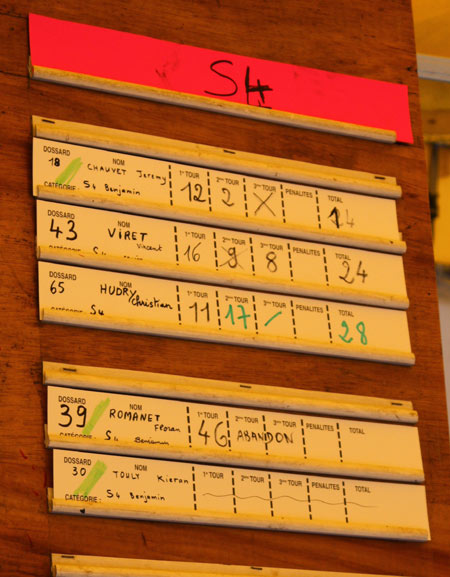 S4
DOSSARD NOM 1er TOUR 2ème TOUR 3ème TOUR PENALITES TOTAL
18 CHAUVET Jeremy 12 2 X 14
CATÉGORIE : S4 Benjamin
DOSSARD NOM 1er TOUR 2ème TOUR 3ème TOUR PENALITES TOTAL
43 VIRET Vincent 16 9 8 24
S4
DOSSARD NOM 1er TOUR 2ème TOUR 3ème TOUR PENALITES TOTAL
65 HUDRY Christian 11 17 / 28
S4
DOSSARD NOM 1er TOUR 2ème TOUR 3ème TOUR PENALITES TOTAL
39 ROMANET Floran 46 ABANDON
CATÉGORIE : S4 Benjamin
DOSSARD NOM 1er TOUR 2ème TOUR 3ème TOUR PENALITES TOTAL
30 TOULY Kieran
CATÉGORIE : S4 Benjamin